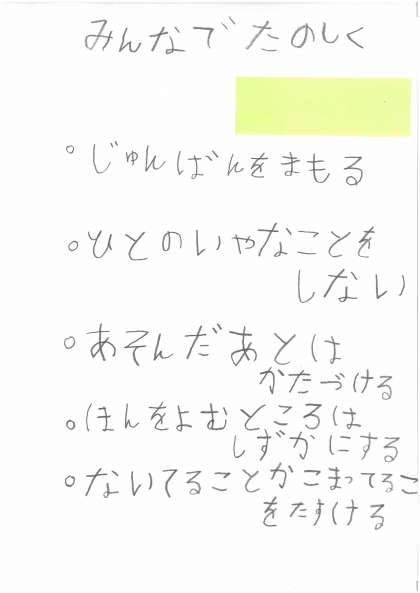 みんなでたのしく
。じゅんばんをまもる
。ひとのいやなことを
しない
。あそんだあとは
かたづける
。ほんをよむところは
しずかにする
。ないてることかこまってるこ
をたすける